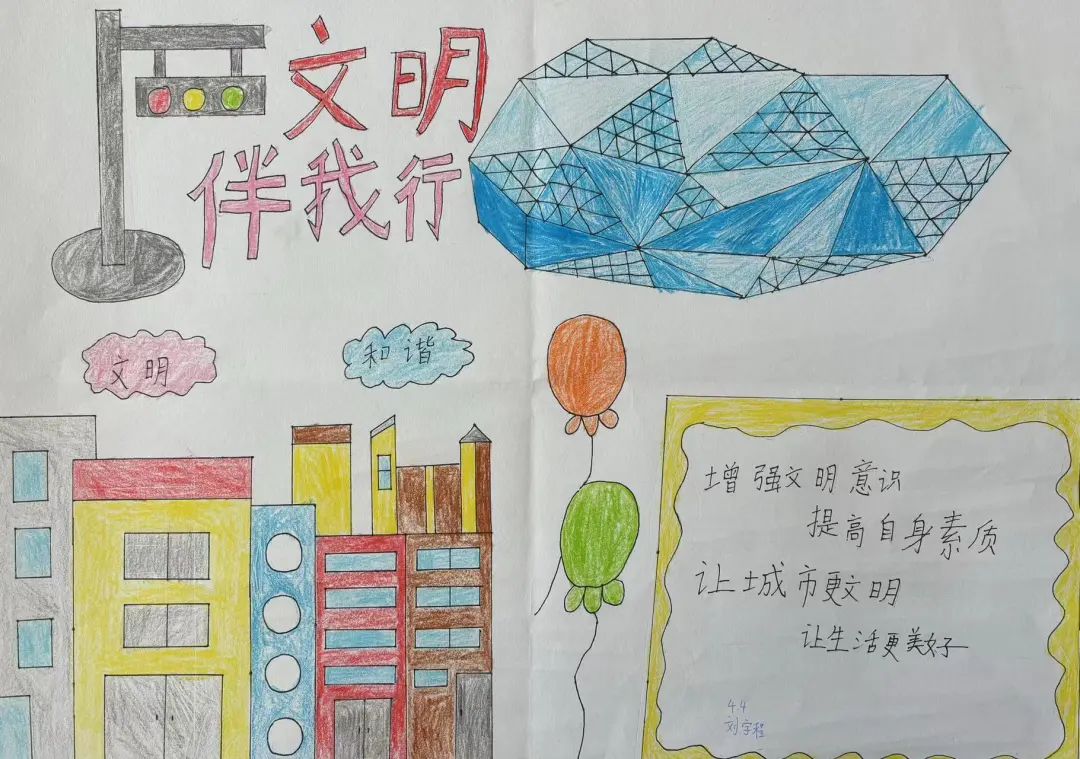 文明
伴我行
文明
和谐
增强文明意识
提高自身素质
让城市更文明
让生活更美好
4.4
刘宇程